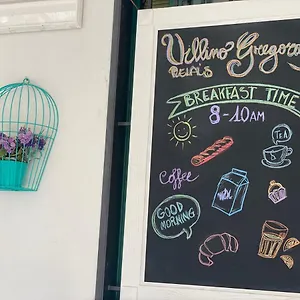 Villino Gregoraci
RELAIS
BREAKFAST TIME
8-10AM
TEA
Coffee
MILK
GOOD
MORNING